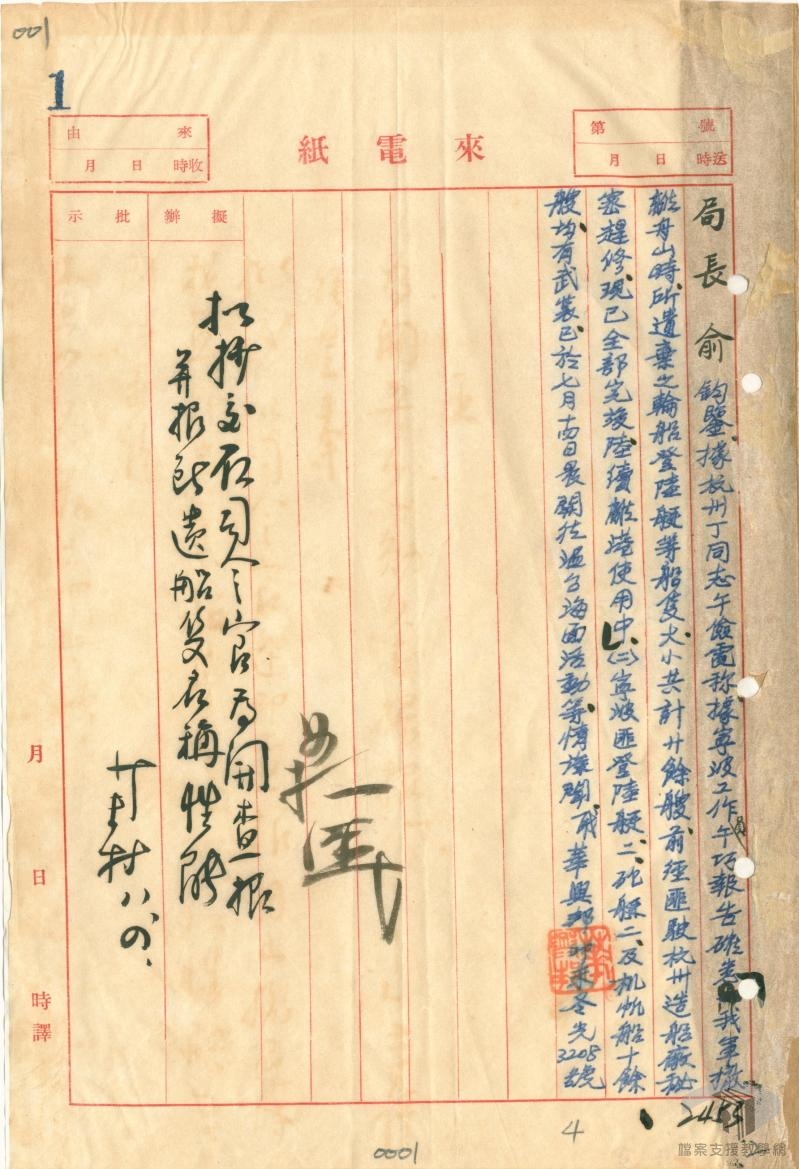 001
1
來電紙
第 號
月 日 時送
來 由
月 日 時收
擬辦
批示
局長俞鈞鑒據杭州丁同志午儉電称據寧波工作員午巧報告確悉㈠我軍撤
離舟山時所遺棄之輪船登陸艇等船隻大小共計廿餘艘前經匪駛杭州造船廠秘
密趕修現已全部完竣陸續離港使用中㈡寧波匪登陸艇二、砲艇二、及机帆船十餘
艘均有武裝已於七月十四日晨開往溫台海面活動等情謹聞
冬光
3208號
抄
并報所遺船隻名稱性能
八、四、
月 日 時譯
2455
4
0001
檔案支援教學網